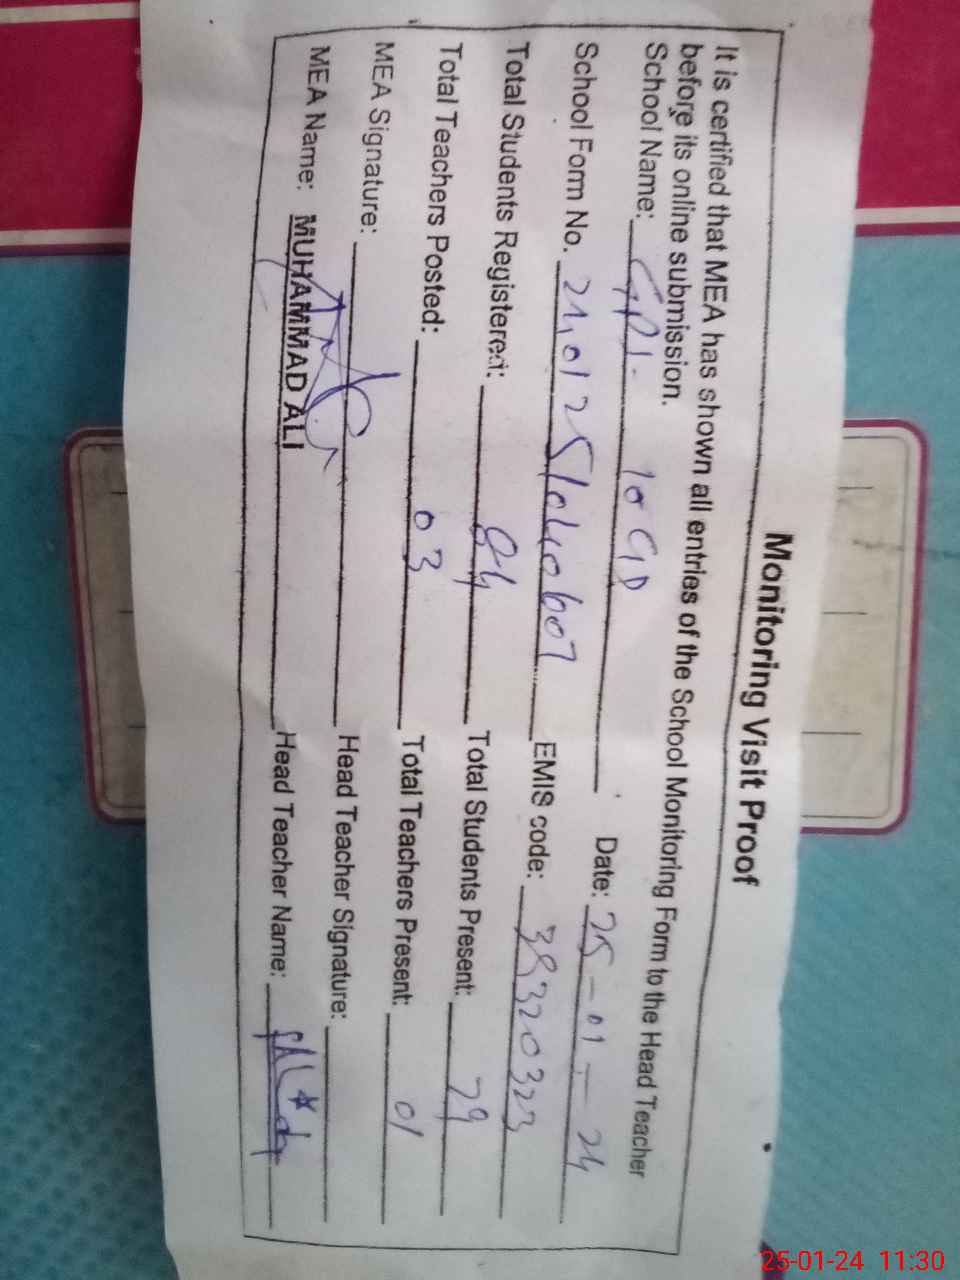 Monitoring Visit Proof
It is certified that MEA has shown all entries of the School Monitoring Form to the Head Teacher
before its online submission.
School Name: GPS. 10 GD Date: 25-01-24
School Form No. EMIS code: 38320323
Total Students Registered: 84 Total Students Present: 29
Total Teachers Posted: 03 Total Teachers Present: 01
MEA Signature: Head Teacher Signature:
MEA Name: MUHAMMAD ALI Head Teacher Name:
25-01-24 11:30